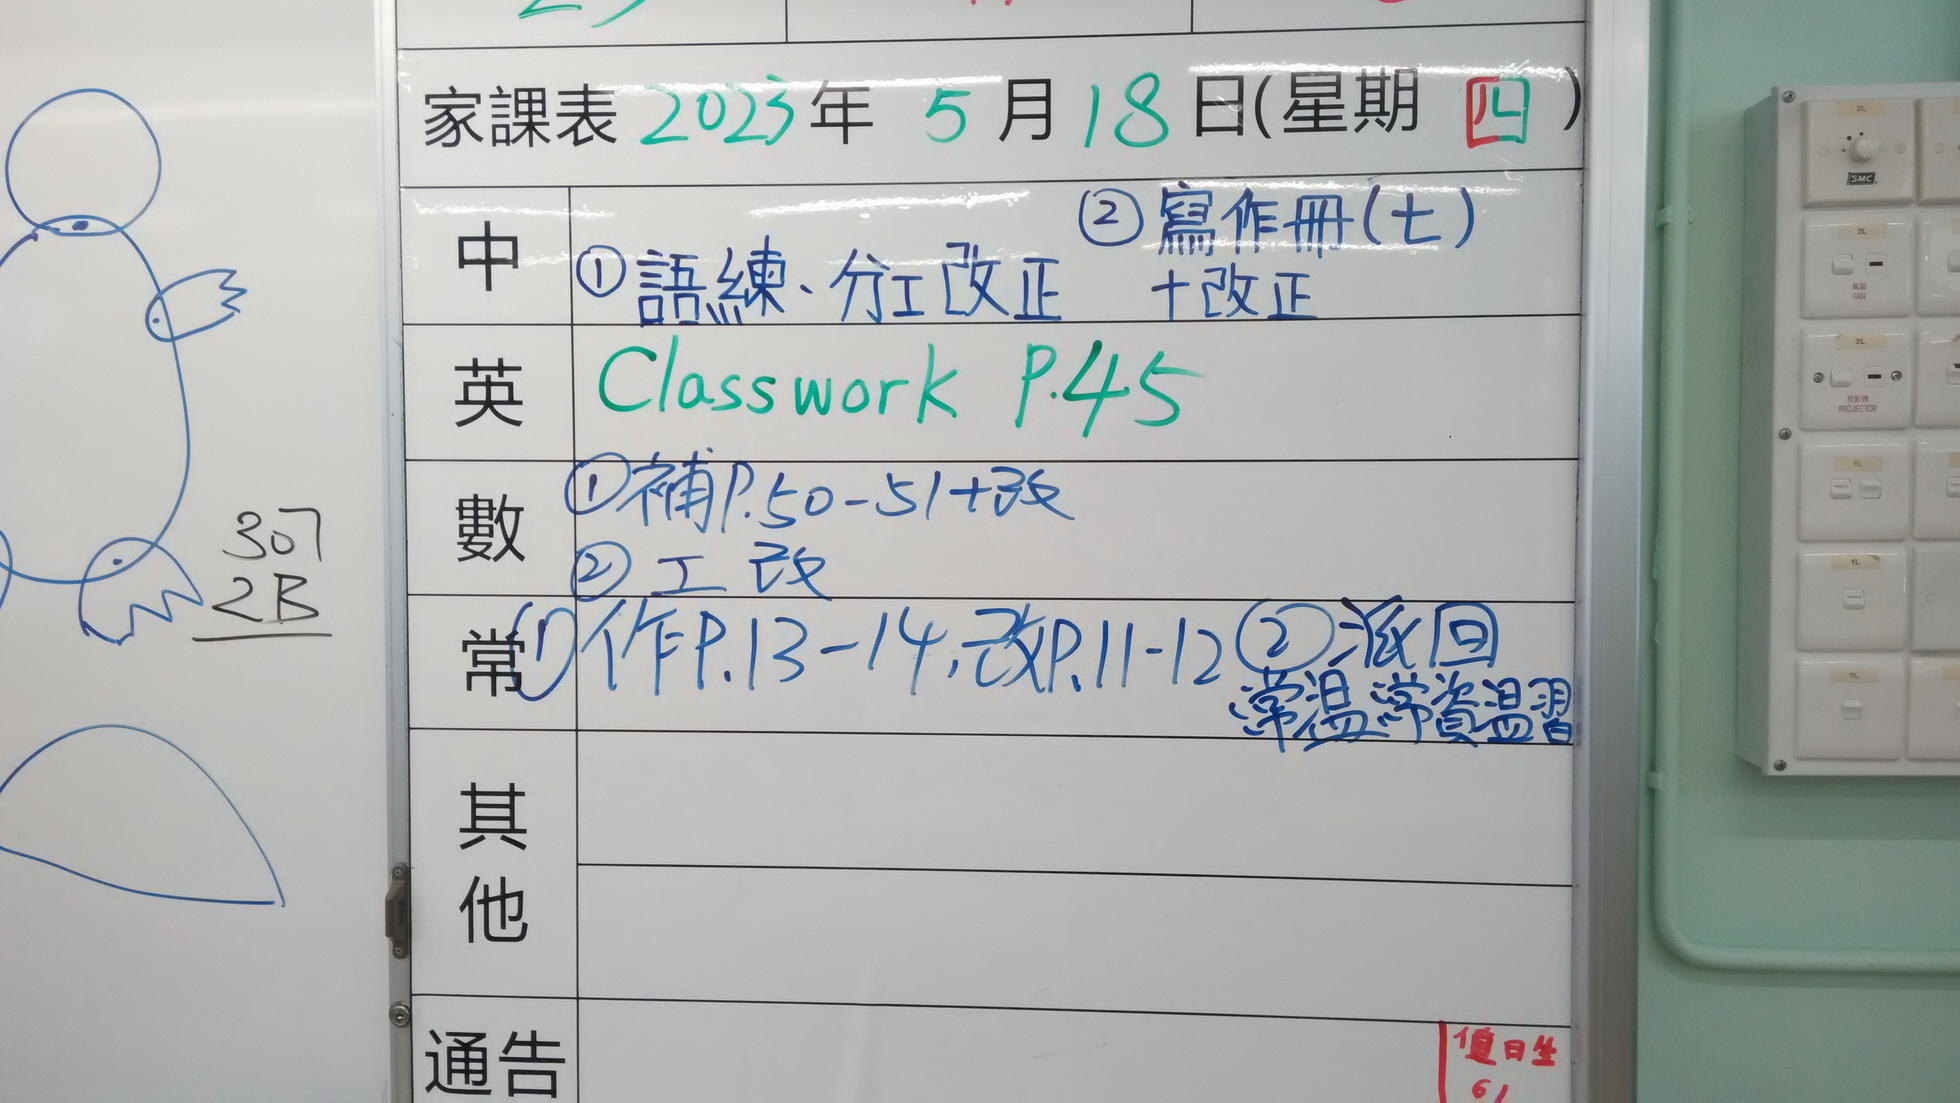 家課表 2023年 5月18日(星期 四)
中
① 語練、分工改正
② 寫作冊(七)
+改正
英
Classwork P.45
數
① 補P.50-51+改
② 工 改
常
① 作P.13-14,改P.11-12 ② 派回
常溫,常資溫習
其他
通告
值日生
307
2B
2L
SMC
2L
風扇
FAN
3L
投影機
PROJECTOR
1L
1L
1L